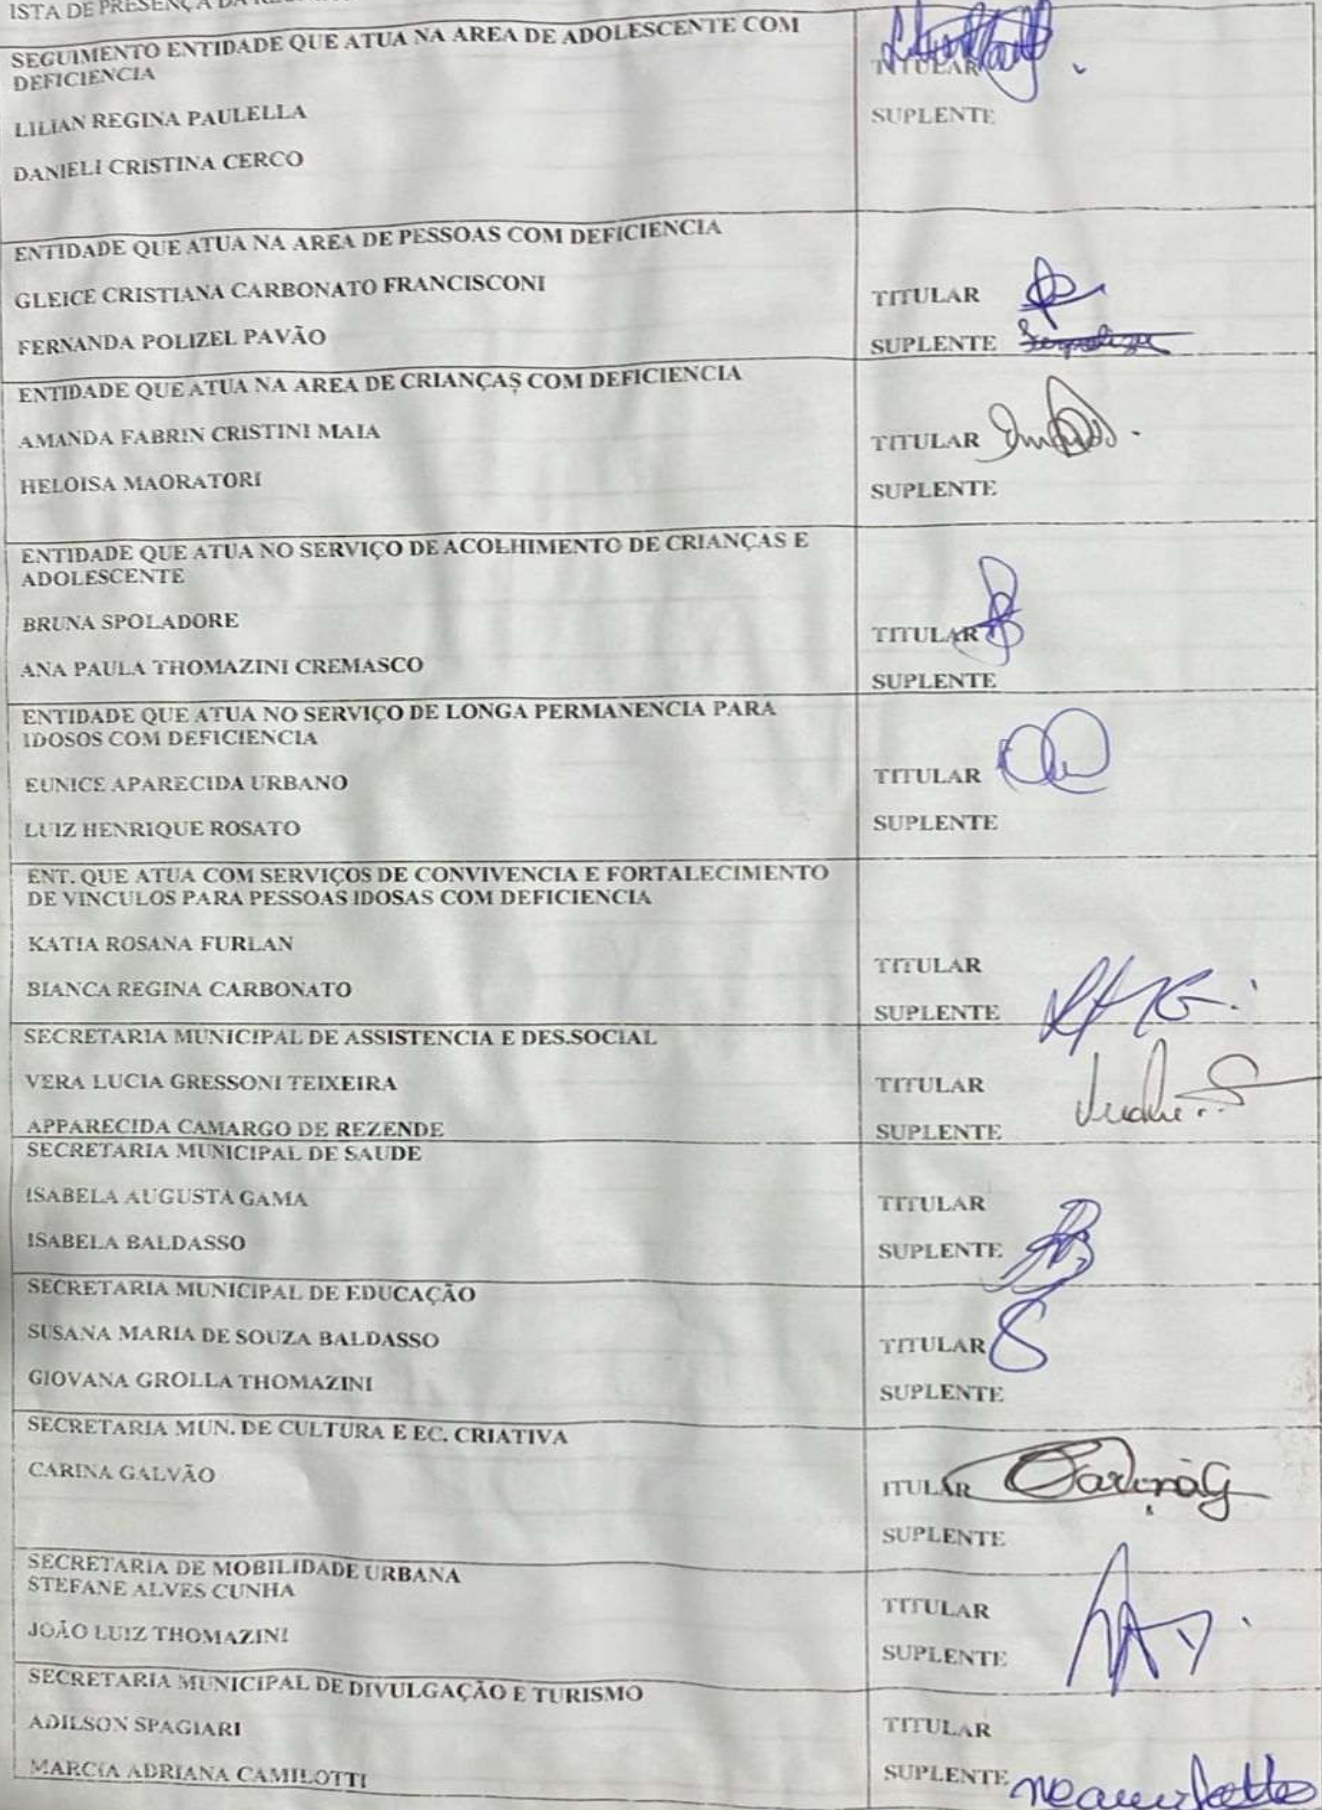 ISTA DE PRESENÇA DA
SEGUIMENTO ENTIDADE QUE ATUA NA AREA DE ADOLESCENTE COM
DEFICIENCIA
TITULAR
LILIAN REGINA PAULELLA
SUPLENTE
DANIELI CRISTINA CERCO
ENTIDADE QUE ATUA NA AREA DE PESSOAS COM DEFICIENCIA
GLEICE CRISTIANA CARBONATO FRANCISCONI
TITULAR
FERNANDA POLIZEL PAVÃO
SUPLENTE
ENTIDADE QUE ATUA NA AREA DE CRIANÇAS COM DEFICIENCIA
AMANDA FABRIN CRISTINI MAIA
TITULAR
HELOISA MAORATORI
SUPLENTE
ENTIDADE QUE ATUA NO SERVIÇO DE ACOLHIMENTO DE CRIANÇAS E
ADOLESCENTE
BRUNA SPOLADORE
TITULAR
ANA PAULA THOMAZINI CREMASCO
SUPLENTE
ENTIDADE QUE ATUA NO SERVIÇO DE LONGA PERMANENCIA PARA
IDOSOS COM DEFICIENCIA
EUNICE APARECIDA URBANO
TITULAR
LUIZ HENRIQUE ROSATO
SUPLENTE
ENT. QUE ATUA COM SERVIÇOS DE CONVIVENCIA E FORTALECIMENTO
DE VINCULOS PARA PESSOAS IDOSAS COM DEFICIENCIA
KATIA ROSANA FURLAN
TITULAR
BIANCA REGINA CARBONATO
SUPLENTE
SECRETARIA MUNICIPAL DE ASSISTENCIA E DES.SOCIAL
VERA LUCIA GRESSONI TEIXEIRA
TITULAR
APPARECIDA CAMARGO DE REZENDE
SUPLENTE
SECRETARIA MUNICIPAL DE SAUDE
ISABELA AUGUSTA GAMA
TITULAR
ISABELA BALDASSO
SUPLENTE
SECRETARIA MUNICIPAL DE EDUCAÇÃO
SUSANA MARIA DE SOUZA BALDASSO
TITULAR
GIOVANA GROLLA THOMAZINI
SUPLENTE
SECRETARIA MUN. DE CULTURA E EC. CRIATIVA
CARINA GALVÃO
ITULAR CarinaG
SUPLENTE
SECRETARIA DE MOBILIDADE URBANA
STEFANE ALVES CUNHA
TITULAR
JOÃO LUIZ THOMAZINI
SUPLENTE
SECRETARIA MUNICIPAL DE DIVULGAÇÃO E TURISMO
ADILSON SPAGIARI
TITULAR
MARCIA ADRIANA CAMILOTTI
SUPLENTE